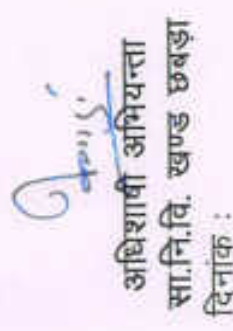 अधिशाषी अभियन्ता
सा.नि.वि. खण्ड छबड़ा
दिनांक :